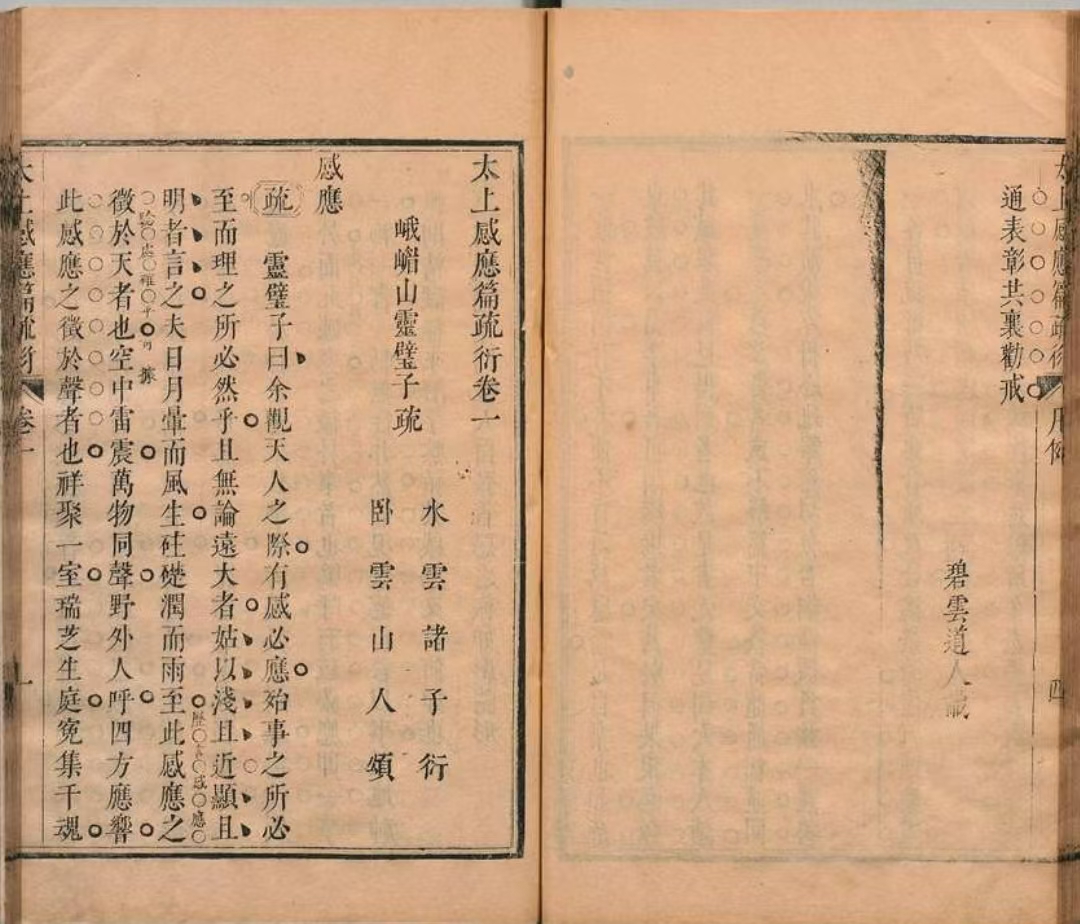 太上感應篇疏衍
凡例
四
通表彰共襄勸戒
碧雲道人識
太上感應篇疏衍卷一
峨嵋山靈璧子疏
水雲諸子衍
卧雲山人頌
感應
疏 靈璧子曰余觀天人之際有感必應殆事之所必
至而理之所必然乎且無論遠大者姑以淺且近顯且
歷言感應
明者言之夫日月暈而風生硅礎潤而雨至此感應之
徵於天者也空中雷震萬物同聲野外人呼四方應響
此感應之徵於聲者也祥聚一室瑞芝生庭冤集千魂
太上感應篇疏衍
卷一
一